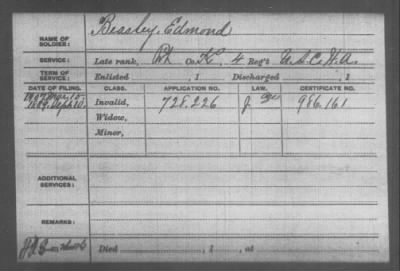 NAME OF SOLDIER: Beasley, Edmond
SERVICE: Late rank, Pvt Co. K, 4 Reg't U.S.C.H.A.
TERM OF SERVICE: Enlisted , 1 Discharged , 1
DATE OF FILING. CLASS. APPLICATION NO. LAW. CERTIFICATE NO.
1889 Sept 10 Invalid, 728.226 986.161
Widow,
Minor,
ADDITIONAL SERVICES:
REMARKS:
Died , 1 , at